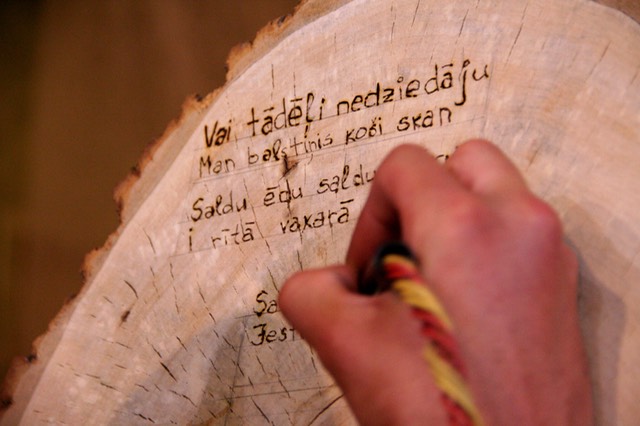 Vai tādēļi nedziedāju
Man balstiņis koši skan
Saldu ēdu saldu
i rītā vakarā
Sa
Jest